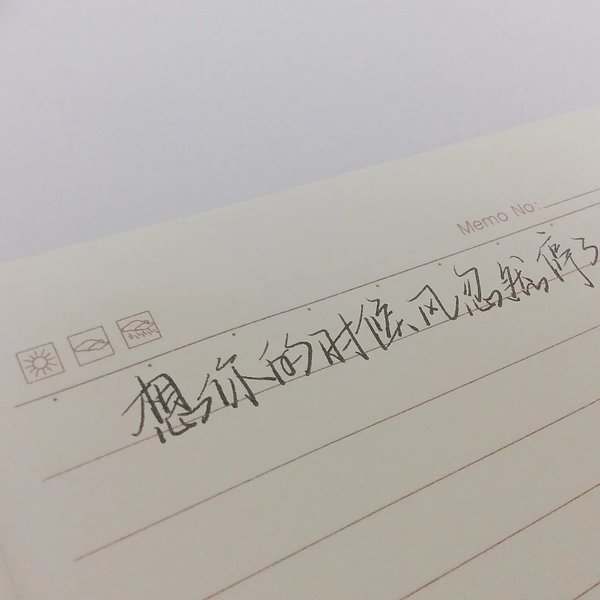 Memo No:
想你的时候风忽然停了